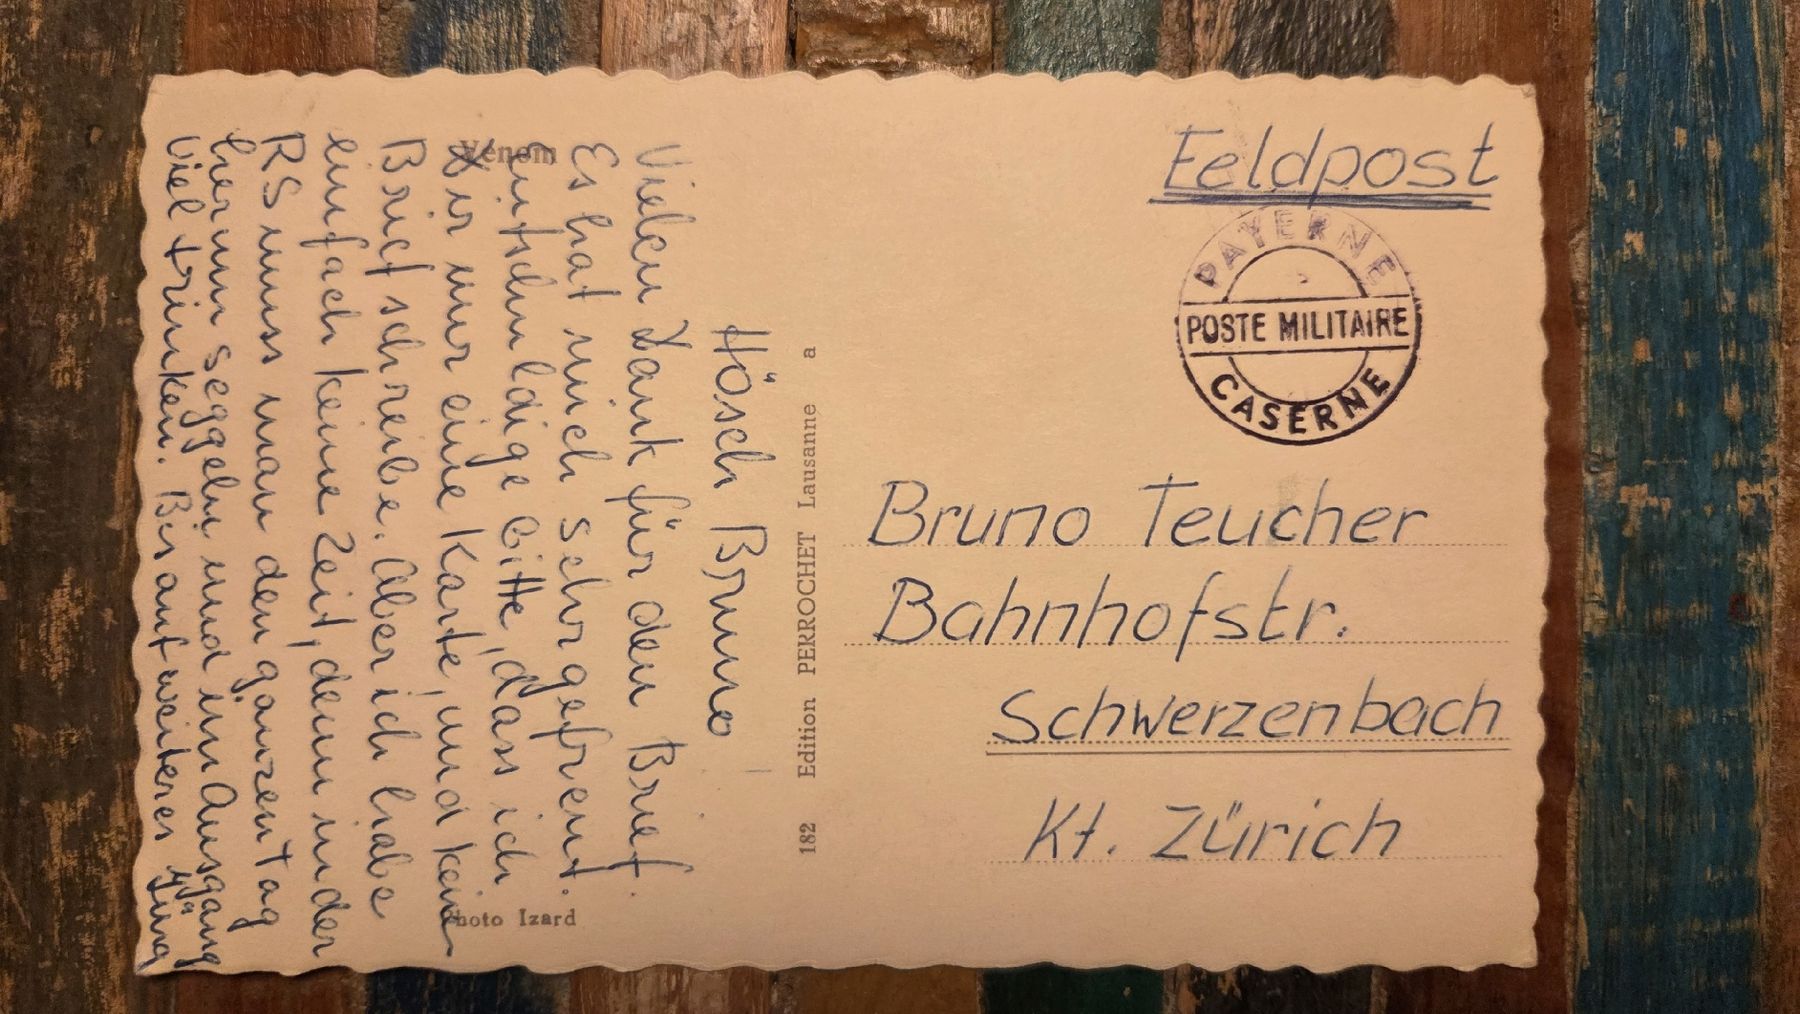 Hösch Bruno
Vielen Dank für den Brief.
Es hat mich sehr gefreut.
Entschuldige bitte, dass ich
Dir nur eine Karte, und kein
Brief schreibe. Aber ich habe
einfach keine Zeit, denn in der
RS muss man den ganzen Tag
herum seggeln und im Ausgang
viel trinken. Bis auf weiteres
Jürg
Venom
Photo Izard
182 Edition PERROCHET Lausanne a
Feldpost
PAYERNE
POSTE MILITAIRE
CASERNE
Bruno Teucher
Bahnhofstr.
Schwerzenbach
Kt. Zürich